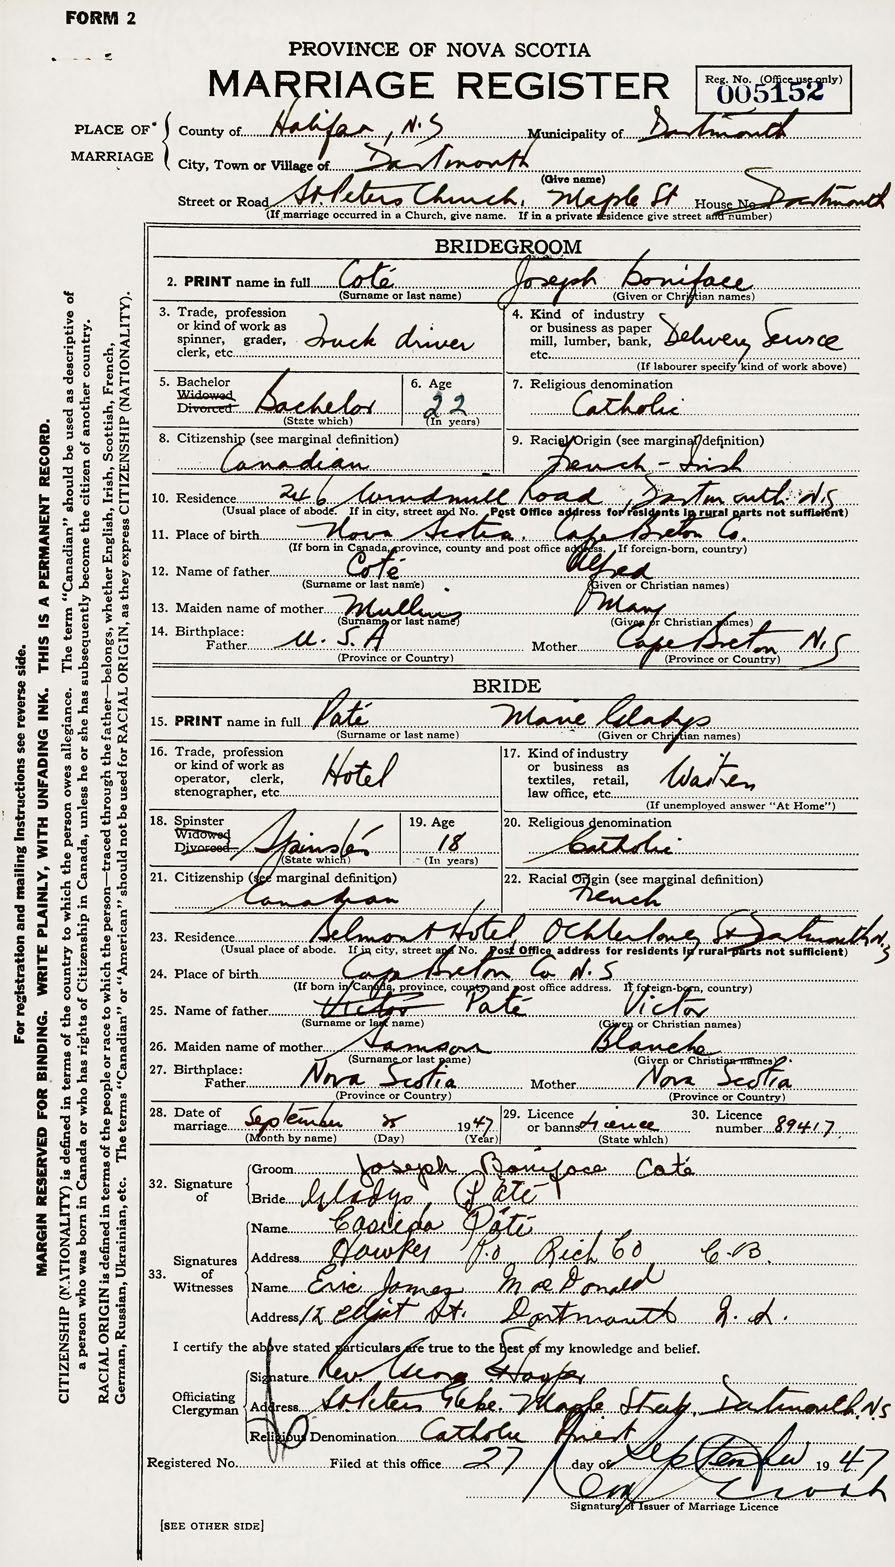 FORM 2
PROVINCE OF NOVA SCOTIA
MARRIAGE REGISTER
Reg. No. (Office use only)
005152
PLACE OF MARRIAGE
County of Halifax, N.S Municipality of Dartmouth
City, Town or Village of Dartmouth
(Give name)
Street or Road St. Peters Church, Maple St House No. Dartmouth
(If marriage occurred in a Church, give name. If in a private residence give street and number)
BRIDEGROOM
2. PRINT name in full Coté Joseph Boniface
(Surname or last name) (Given or Christian names)
3. Trade, profession or kind of work as spinner, grader, clerk, etc. Truck driver
4. Kind of industry or business as paper mill, lumber, bank, etc. Delivery Service
(If labourer specify kind of work above)
5. Bachelor Widowed Divorced Bachelor
(State which)
6. Age 22
(In years)
7. Religious denomination Catholic
8. Citizenship (see marginal definition) Canadian
9. Racial Origin (see marginal definition) French-Irish
10. Residence 246 Windmill Road, Dartmouth N.S
(Usual place of abode. If in city, street and No. Post Office address for residents in rural parts not sufficient)
11. Place of birth Nova Scotia. Cape Breton Co.
(If born in Canada, province, county and post office address. If foreign-born, country)
12. Name of father Coté Alfred
(Surname or last name) (Given or Christian names)
13. Maiden name of mother Mullins Mary
(Surname or last name) (Given or Christian names)
14. Birthplace: Father U.S.A Mother Cape Breton N.S
(Province or Country) (Province or Country)
BRIDE
15. PRINT name in full Paté Marie Gladys
(Surname or last name) (Given or Christian names)
16. Trade, profession or kind of work as operator, clerk, stenographer, etc. Hotel
17. Kind of industry or business as textiles, retail, law office, etc.
(If unemployed answer "At Home")
18. Spinster Widowed Divorced Spinster
(State which)
19. Age 18
(In years)
20. Religious denomination Catholic
21. Citizenship (see marginal definition) Canadian
22. Racial Origin (see marginal definition) French
23. Residence Belmont Hotel, Ochterloney St Dartmouth N.S
(Usual place of abode. If in city, street and No. Post Office address for residents in rural parts not sufficient)
24. Place of birth Cape Breton Co N.S
(If born in Canada, province, county and post office address. If foreign-born, country)
25. Name of father Victor Paté Victor
(Surname or last name) (Given or Christian names)
26. Maiden name of mother Samson Blanche
(Surname or last name) (Given or Christian names)
27. Birthplace: Father Nova Scotia Mother Nova Scotia
(Province or Country) (Province or Country)
28. Date of marriage September 8 1947
(Month by name) (Day) (Year)
29. Licence or banns Licence
(State which)
30. Licence number 89417
32. Signature of
Groom Joseph Boniface Coté
Bride Gladys Paté
33. Signatures of Witnesses
Name Paté
Address Hawker P.O Rich Co C.B.
Name Eric James MacDonald
Address 12 Elliot St. Dartmouth N.S.
I certify the above stated particulars are true to the best of my knowledge and belief.
Officiating Clergyman
Signature Rev George
Address St. Peters Glebe. Maple Street, Dartmouth, N.S
Religious Denomination Catholic Priest
Registered No. Filed at this office 27 day of September 1947
Signature of Issuer of Marriage Licence
[SEE OTHER SIDE]
For registration and mailing instructions see reverse side.
MARGIN RESERVED FOR BINDING. WRITE PLAINLY, WITH UNFADING INK. THIS IS A PERMANENT RECORD.
CITIZENSHIP (NATIONALITY) is defined in terms of the country to which the person owes allegiance. The term "Canadian" should be used as descriptive of
a person who was born in Canada or who has rights of Citizenship in Canada, unless he or she has subsequently become the citizen of another country.
RACIAL ORIGIN is defined in terms of the people or race to which the person—traced through the father—belongs, whether English, Irish, Scottish, French,
German, Russian, Ukrainian, etc. The terms "Canadian" or "American" should not be used for RACIAL ORIGIN, as they express CITIZENSHIP (NATIONALITY).